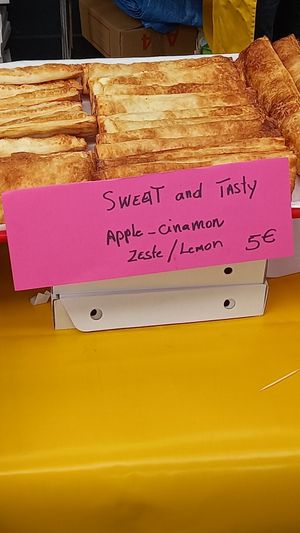 SWEET and Tasty
Apple-cinamon
Zeste/Lemon 5€